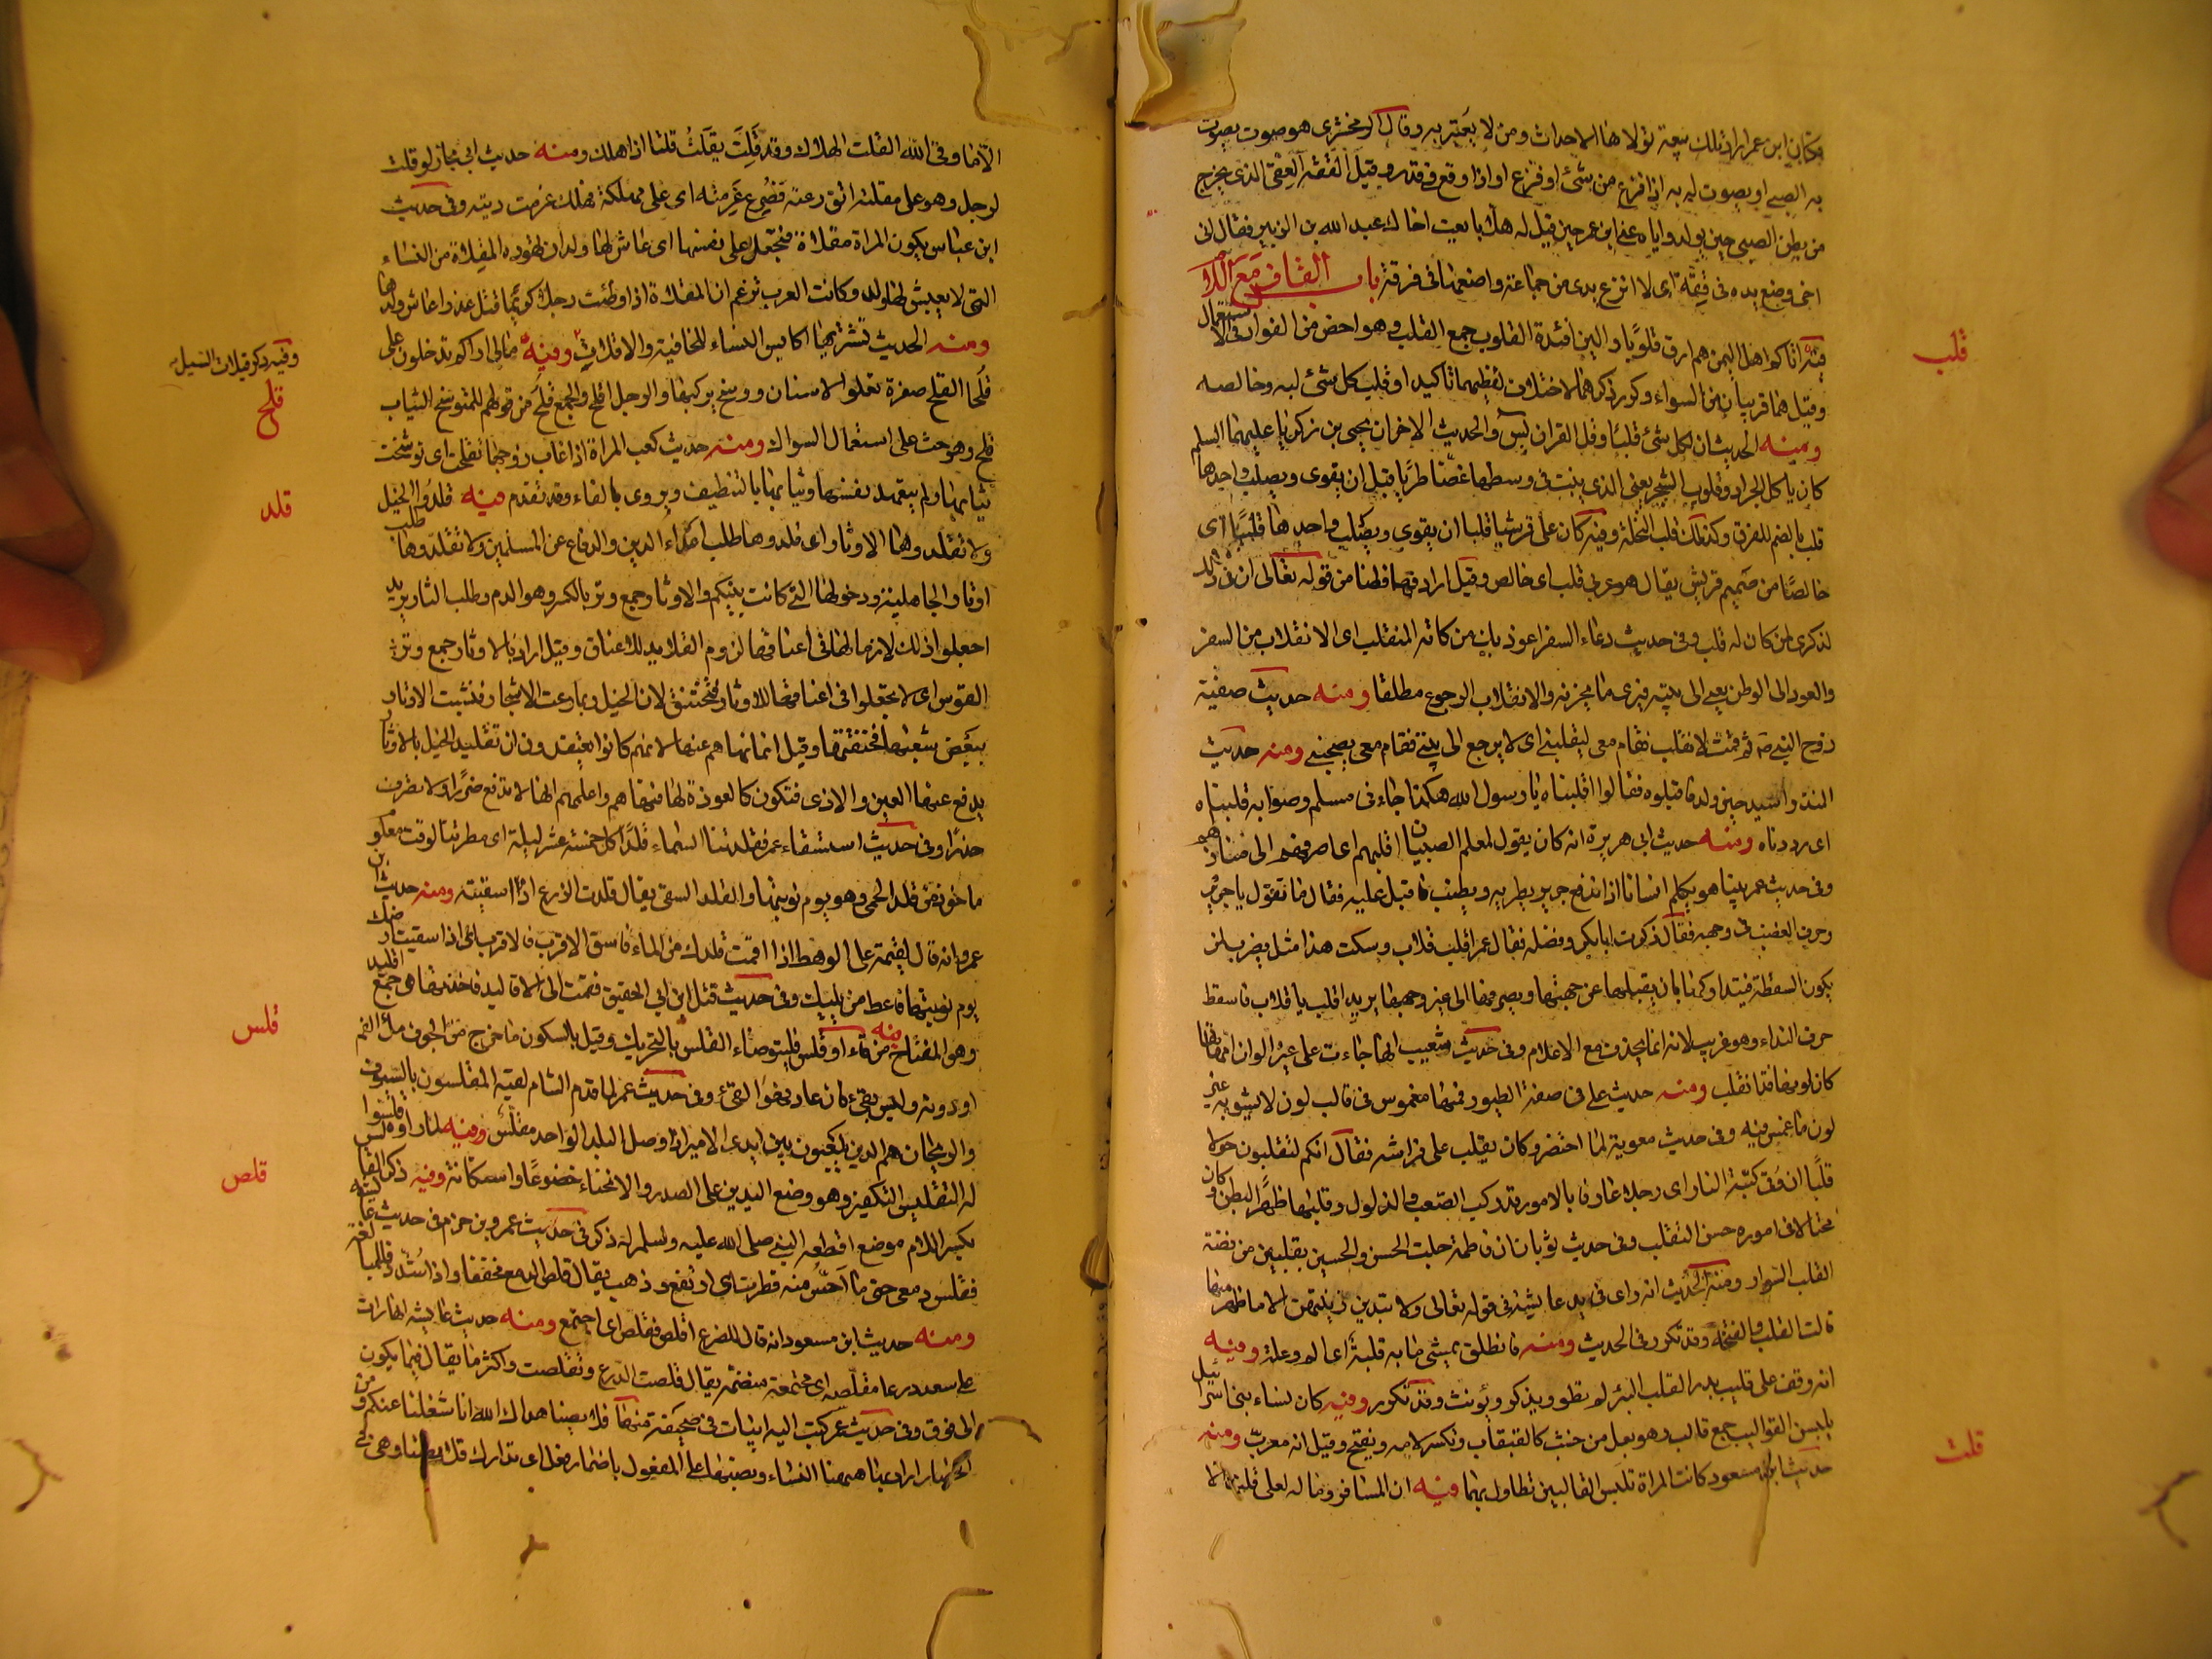 فكان ابن عمر اراد تلك بيعة تولاها الاحداث ومن لا يعتبر به وقال الزمخشرى هو صوت يصوت
به الصبي او يصوت له به اذا فزع من شئ او فزع او اذا وقع في قذر وقيل القفة العقى الذى يخرج
من بطن الصبي حين يولد واياه عنى ابن عمر حين قيل له هلا بايعت اخاك عبد الله بن الزبير فقال ان
اخى وضع يده فى قفة اى لا انزع يدى من جماعة واضعها فى فرقة باب القاف مع اللام
فيه اتاكم اهل اليمن هم ارق قلوبا والين افئدة القلوب جمع القلب وهو اخص من الفواد فى الاستعمال
وقيل هما قريبان من السواء وكرر ذكرهما لاختلاف لفظيهما تاكيدا وقلب كل شئ لبه وخالصه
ومنه الحديث ان لكل شئ قلبا وقلب القران يس والحديث الاخر ان يحيى بن زكريا عليهما السلم
كان ياكل الجراد وقلوب الشجر يعنى الذى ينبت فى وسطها غضا طريا قبل ان يقوى ويصلب واحدها
قلب بالضم للفرق وكذلك قلب النخلة وفيه كان على قرشيا قلبا اى
خالصا من صميم قريش يقال هو عربى قلب اى خالص وقيل اراد فهما فطنا من قوله تعالى ان فى ذلك
لذكرى لمن كان له قلب وفى حديث دعاء السفر اعوذ بك من كابة المنقلب اى الانقلاب من السفر
والعود الى الوطن يعنى الى بيته فيرى ما يحزنه والانقلاب الرجوع مطلقا ومنه حديث صفية
زوج النبى ثم قمت لانقلب فقام معى ليقلبنى اى لارجع الى بيتى فقام معى يصحبنى ومنه حديث
المنذر بن اسيد حين ولد فاقلبوه فقالوا اقلبناه يا رسول الله هكذا جاء فى مسلم وصوابه قلبناه
اى رددناه ومنه حديث ابى هريرة انه كان يقول لمعلم الصبيان اقلبهم اى اصرفهم الى منازلهم
وفى حديث عمر بينا هو يكلم انسانا اذ اندفع جرير يطريه ويطنب فاقبل عليه فقال ما تقول يا جرير
وعرف الغضب فى وجهه فقال ذكرت ابابكر وفضله فقال عمر اقلب قلاب وسكت هذا مثل يضرب لمن
يكون السقطة فيتداركها بان يقلبها عن جهتها ويصرفها الى غير وجهها يريد اقلب يا قلاب فاسقط
حرف النداء وهو غريب لانه انما يحذف مع الاعلام وفى حديث شعيب انها جاءت على غير الوان امهاتها
كان لونها قد انقلب ومنه حديث على فى صفة الطيور فمنها مغموس فى قالب لون لا يشوبه غير
لون ما غمس فيه وفى حديث معوية لما احتضر وكان يقلب على فراشه فقال انكم لتقلبون حولا
قلبا ان وقى كبة النار اى رجلا عارفا بالامور قد ركب الصعب والذلول وقلبها ظهر البطن وكان
محتالا فى اموره حسن التقلب وفى حديث ثوبان ان فاطمة حلت الحسن والحسين بقلبين من فضة
القلب السوار ومنه الحديث انه راى فى يد عايشة فى قوله تعالى ولا يبدين زينتهن الا ما ظهر منها
قالت القلب والفتخة وقد تكرر فى الحديث ومنه فانطلق يمشى ما به قلبة اى الم وعلة وفيه
انه وقف على قليب بدر القلب البئر لم يطو ويذكر ويؤنث وقد تكرر وفيه كان نساء بنى اسرائيل
يلبسن القوالب جمع قالب وهو نعل من خشب كالقبقاب وتكسر لامه ويفتح وقيل انه معرب ومنه
حديث ابن مسعود كانت المراة تلبس القالبين تطاول بهما وفيه ان المسافر وماله لعلى قلت الا
قلب
قلت
الا ما وقى الله القلت الهلاك وقد قلت يقلت قلتا اذا هلك ومنه حديث ابى مجلز لو قلت
لرجل وهو على مقلتة اتق رعته فصرع غرمته اى على مهلكة فهلك غرمت ديته وفى حديث
ابن عباس يكون المراة مقلاة فتجعل على نفسها اى عاش لها ولد ان تهوده المقلاة من النساء
التى لا يعيش لها ولد وكانت العرب تزعم ان المقلاة اذا وطئت رجلا كريما قتل غدرا عاش ولدها
ومنه الحديث تشتريها اكايس النساء للخافية والاقلات وفيه مالى اراكم تدخلون على
قلحا القلح صفرة تعلو الاسنان ووسخ يركبها والرجل اقلح والجمع قلح من قولهم للمتوسخ الثياب
قلح وهو حث على استعمال السواك ومنه حديث كعب المراة اذا غاب زوجها تقلحت اى توسخت
ثيابها ولم يتعهد نفسها وثيابها بالتنظيف ويروى بالفاء وقد تقدم فيه قلدوا الخيل
ولا تقلدوها الاوتار اى قلدوها طلب اعداء الدين والدفاع عن المسلمين ولا تقلدوها طلب
اوتار الجاهلية ودخولها التى كانت بينكم والاوتار جمع وتر بالكسر وهو الدم وطلب الثار يريد
اجعلوا ذلك لازما لها فى اعناقها لزوم القلايد للاعناق وقيل اراد بالاوتار جمع وتر
القوس اى لا تجعلوا فى اعناقها الاوتار فتختنق لان الخيل ربما رعت الاشجار فنشبت الاوتار
ببعض شعبها فخنقتها وقيل انما نهاهم عنها لانهم كانوا يعتقدون ان تقليد الخيل بالاوتار
يدفع عنها العين والاذى فتكون كالعوذة لها فنهاهم واعلمهم انها لا تدفع ضررا ولا تصرف
حذرا وفى حديث استسقاء عمر فقلدتنا السماء قلدا كل خمس عشرة ليلة اى مطرتنا لوقت معلوم
ماخوذ من قلد الحمى وهو يوم نوبتها والقلد السقى يقال قلدت الزرع اذا سقيته ومنه حديث ابن
عمرو انه قال لقيمه على الوهط اذا اقمت قلدك من الماء فاسق الاقرب فالاقرب اى اذا سقيت ارضك
يوم نوبتها فاعط من يليك وفى حديث قتل ابن ابى الحقيق فقمت الى الاقاليد فاخذتها هى جمع اقليد
وهو المفتاح فيه من قاء او قلس فليتوضاء القلس بالتحريك وقيل بالسكون ما خرج من الجوف ملأ الفم
او دونه وليس بقئ فان عاد فهو القئ وفى حديث عمر لما قدم الشام لقيه المقلسون بالسيوف
والريحان هم الذين يلعبون بين ايدى الامير اذا وصل البلد الواحد مقلس وفيه لما راوه قلسوا
له التقليس التكفير وهو وضع اليدين على الصدر والانحناء خضوعا واستكانة وفيه ذكر القالس
بكسر اللام موضع اقطعه النبى صلى الله عليه وسلم له ذكر فى حديث عمرو بن حزم فى حديث عايشة
فقلس دمعى حتى ما احس منه قطرة اى ارتفع وذهب يقال قلص الدمع مخففا واذا شدد فللمبالغة
ومنه حديث ابن مسعود انه قال للضرع اقلص فقلص اى اجتمع ومنه حديث عايشة انها رات
على سعد درعا مقلصة اى مجتمعة منضمة يقال قلصت الدرع وتقلصت واكثر ما يقال فيما يكون
الى فوق وفى حديث عمر كتب اليه ابيات فى صحيفة منها قلايصنا هداك الله انا شغلنا عنكم زمن
الحصار اراد بها ههنا النساء ونصبها على المفعول باضمار فعل اى تدارك قلايصنا وهى فى
وفيه ذكر قلات السيل
قلح
قلد
قلس
قلص